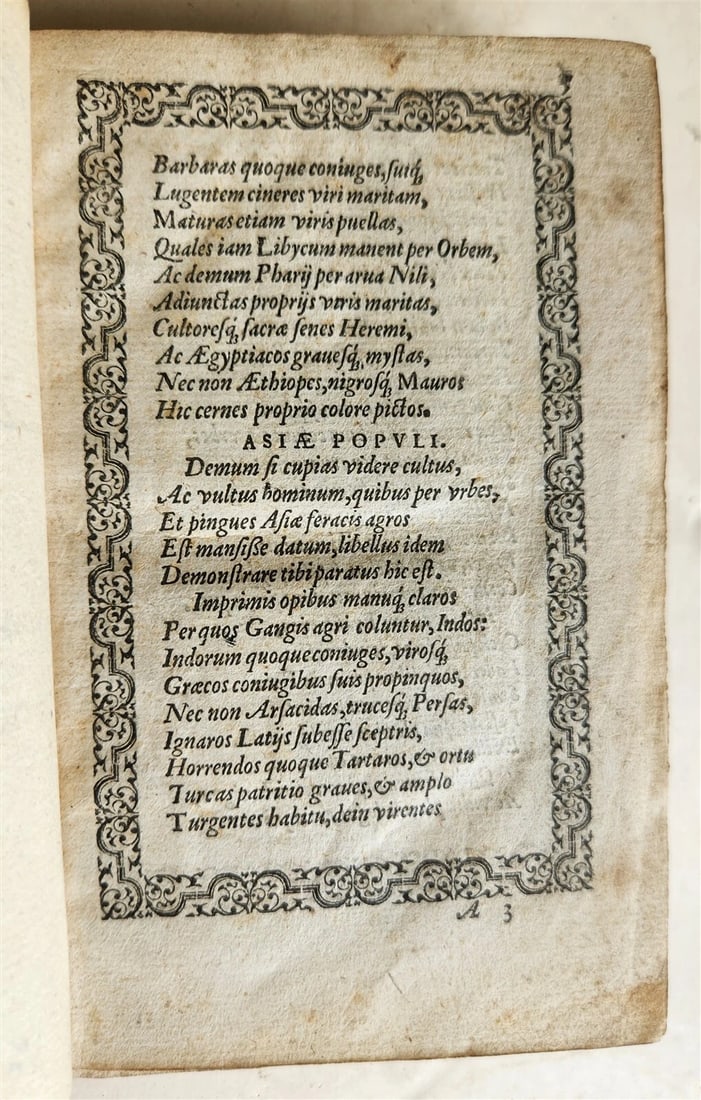 Barbaras quoque coniuges, ſuiq́;
Lugentem cineres viri maritam,
Maturas etiam viris puellas,
Quales iam Libycum manent per Orbem,
Ac demum Pharij per arua Nili,
Adiunctas proprijs viris maritas,
Cultoreſq́; ſacræ ſenes Heremi,
Ac Ægyptiacos graueſq́; myſtas,
Nec non Æthiopes, nigroſq́; Mauros
Hic cernes proprio colore pictos.
ASIÆ POPVLI.
Demum ſi cupias videre cultus,
Ac vultus hominum, quibus per vrbes,
Et pingues Aſiæ feracis agros
Eſt manſiſſe datum, libellus idem
Demonſtrare tibi paratus hic eſt.
Imprimis opibus manuq́; claros
Per quos Gangis agri coluntur, Indos:
Indorum quoque coniuges, viroſq́;
Græcos coniugibus ſuis propinquos,
Nec non Arſacidas, truceſq́; Perſas,
Ignaros Latijs ſubeſſe ſceptris,
Horrendos quoque Tartaros, & ortu
Turcas patritio graues, & amplo
Turgentes habitu, dein virentes
A 3